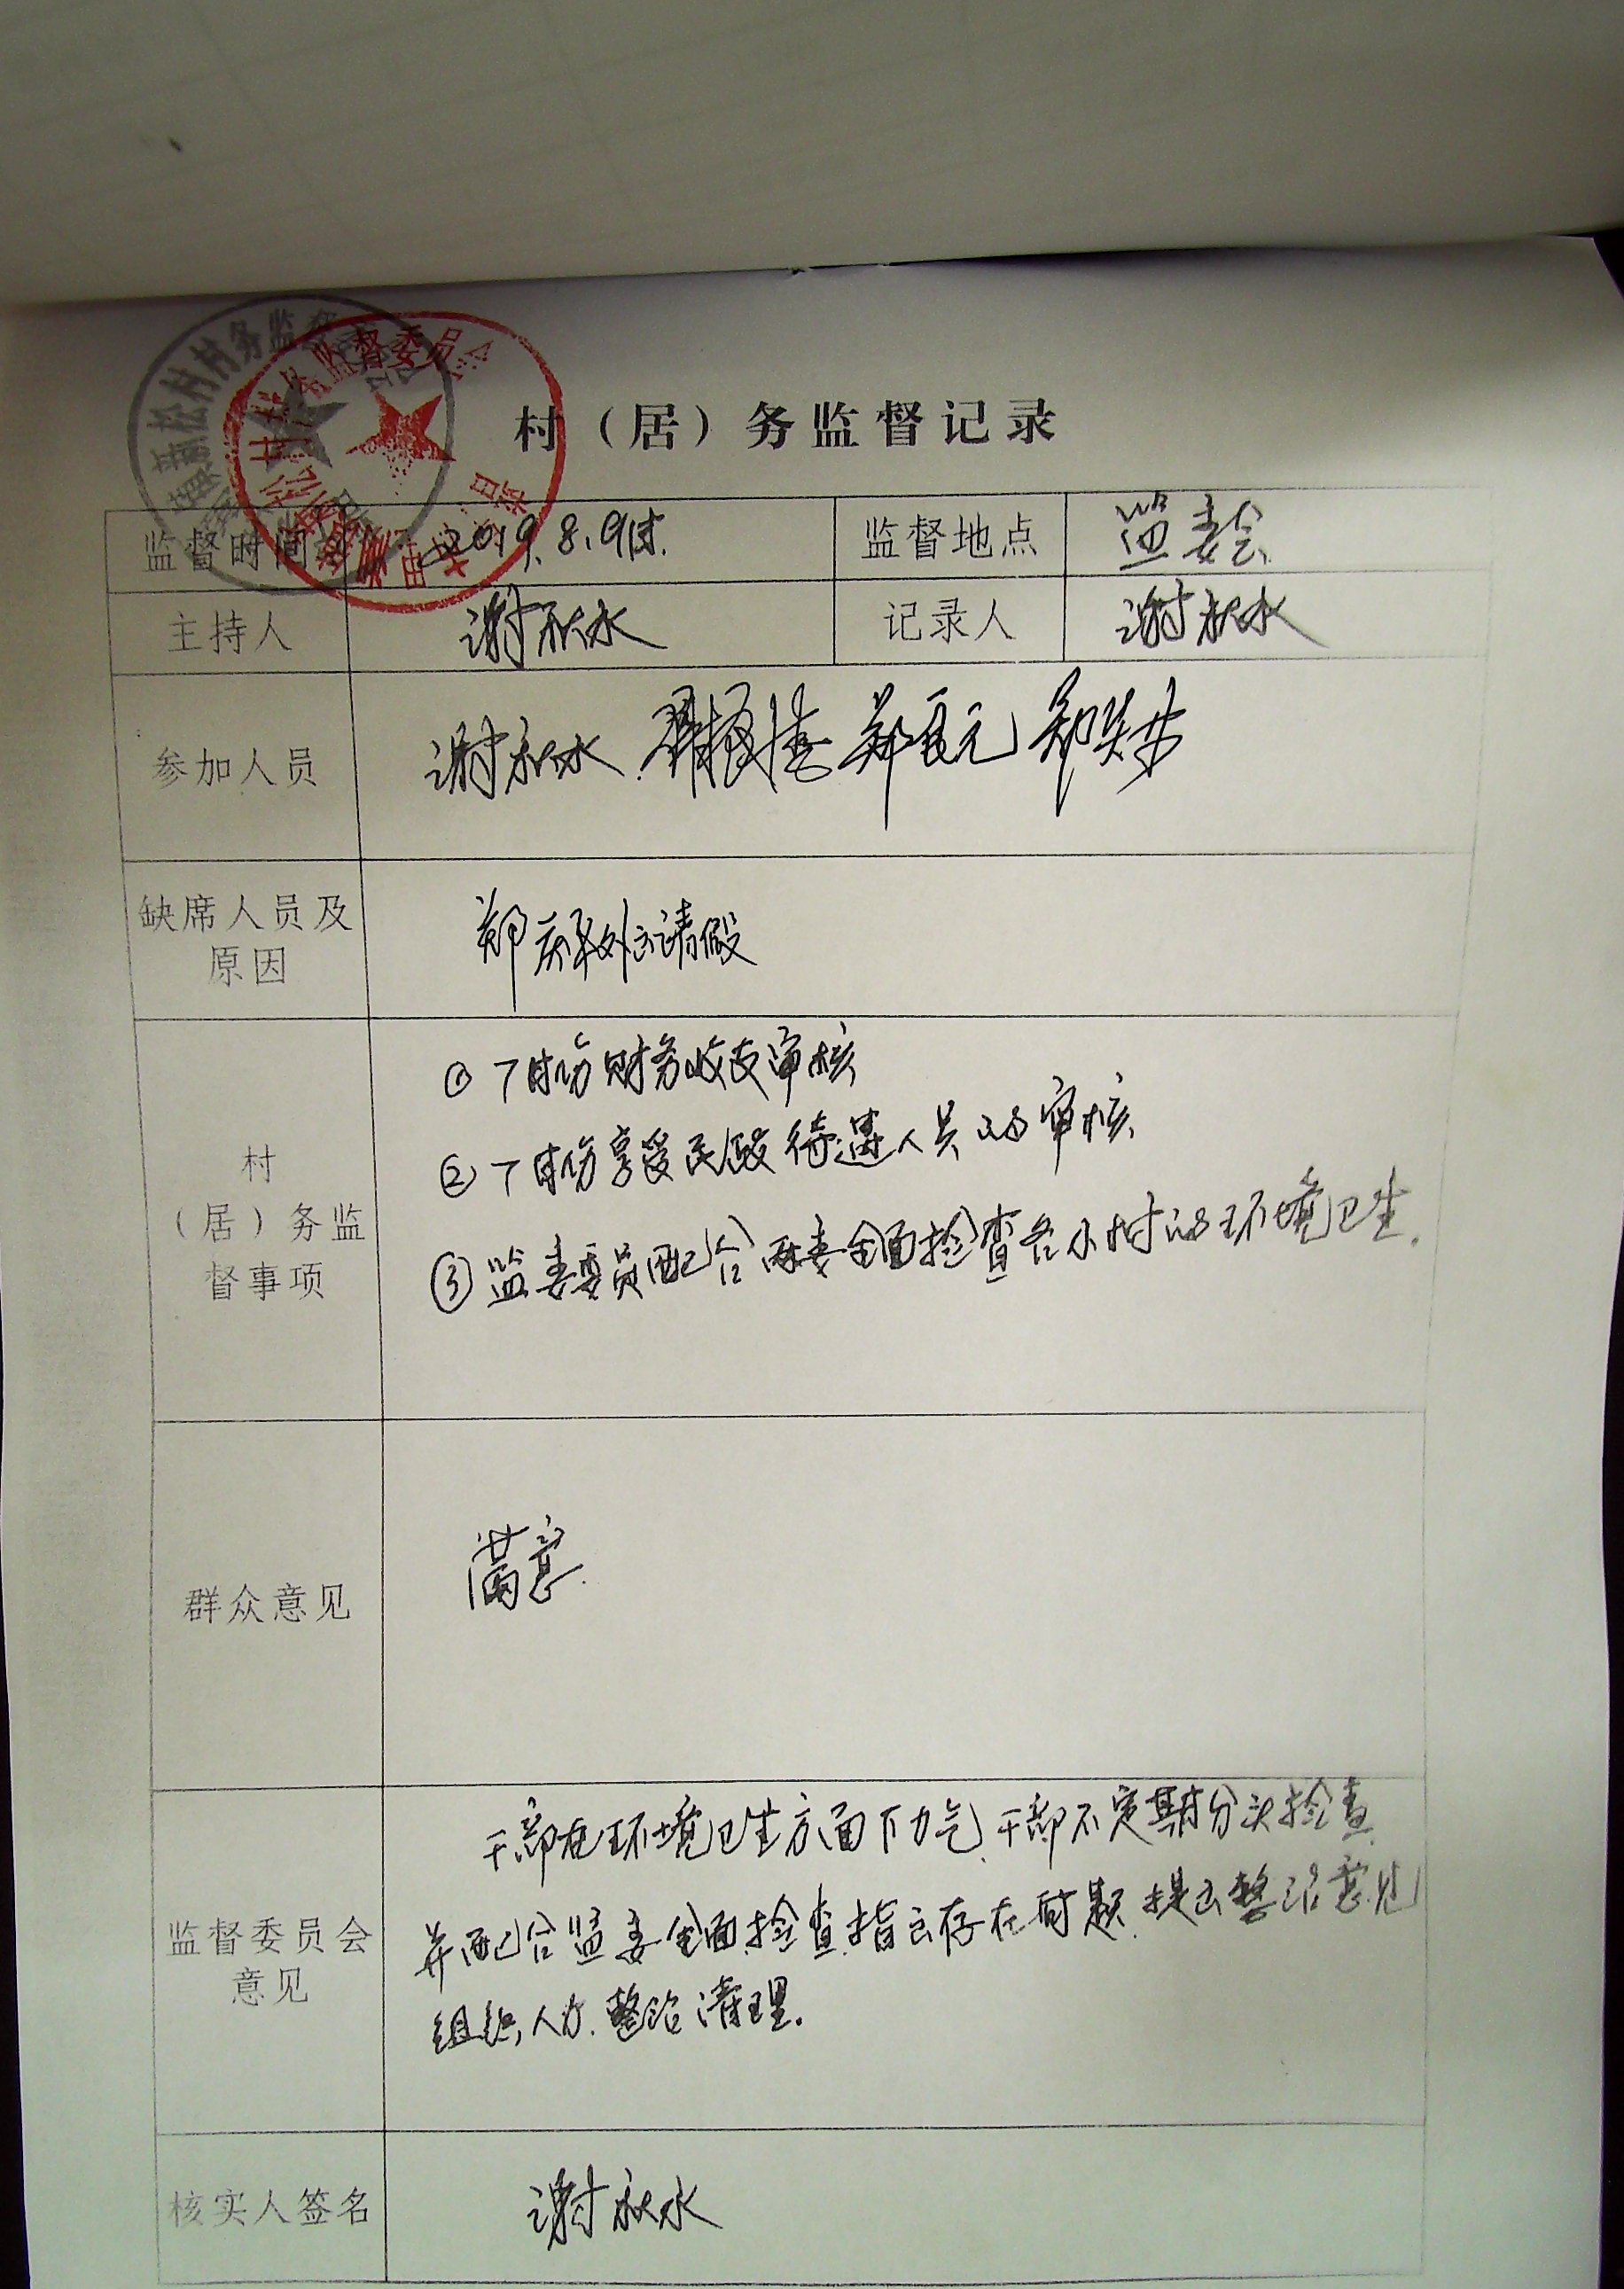 村（居）务监督记录
监督时间 2019.8.9时. 监督地点 监委会
主持人 谢秋水 记录人 谢秋水
参加人员 谢秋水 郑
缺席人员及
原因
郑庆 外出请假
① 7月份财务收支审核
② 7月份享受民政待遇人员的审核
村
（居）务监
督事项
③ 监委委员配合两委全面捡查各小村的环境卫生.
群众意见
满意.
干部在环境卫生方面下力气.干部不定期分头捡查.
监督委员会
意见
并配合监委全面捡查.指出存在问题.提出整治意见
组织人力.整治清理.
核实人签名 谢秋水